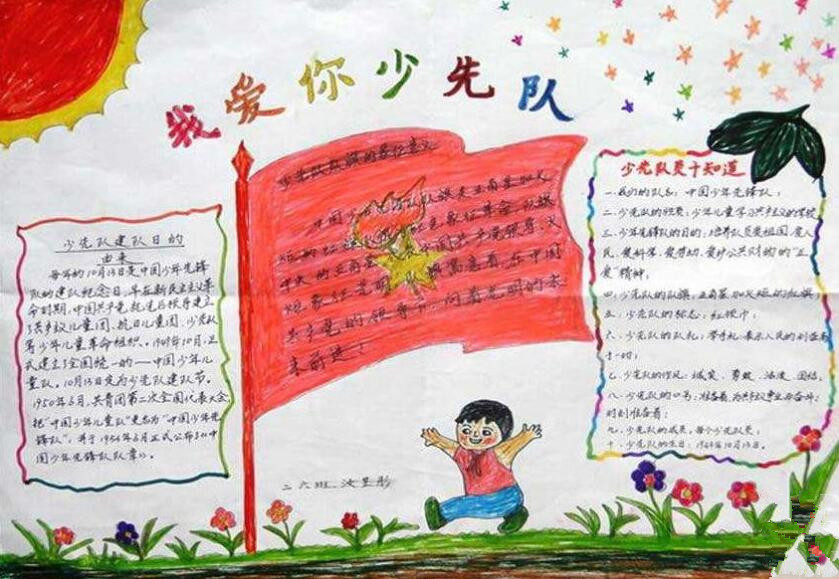 我爱你少先队
少先队建队日的
由来
每年的10月13日是中国少年先锋
队的建队纪念日,早在新民主主义革
命时期,中国共产党就先后领导建立
了共产主义儿童团、抗日儿童团、少先队
等少年儿童革命组织。1949年10月,正
式建立了全国统一的——中国少年儿
童队。10月13日定为少先队建队节。
1950年6月,共青团第二次全国代表大会
把“中国少年儿童队”更名为“中国少年先
锋队”,并于1954年6月正式公布了《中
国少年先锋队队章》。
少先队队旗的象征意义
中国少年先锋队队旗是五角星加火
炬的红旗
象征革命队旗
中央的五角星
中国共产党领导,火
炬象征光明
寓意着在中国
共产党的领导下,向着光明的未
来前进!
少先队员十知道
一、我们的队名:中国少年先锋队;
二、少先队的性质:少年儿童学习共产主义的学校
三、少年先锋队的目的:培养队员爱祖国、爱人
民、爱科学、爱劳动、爱护公共财物的“五
爱”精神;
四、少先队的队旗:五角星加火炬的红旗
五、少先队的标志:红领巾;
六、少先队的队礼:举手礼,表示人民的利益高
于一切;
七、少先队的作风:诚实、勇敢、活泼、团结;
八、少先队的口号:准备着,为共产主义事业而奋斗;
时刻准备着;
九、少先队的成员:每个少先队员;
十、少先队的生日:1949年10月13日。
二六班